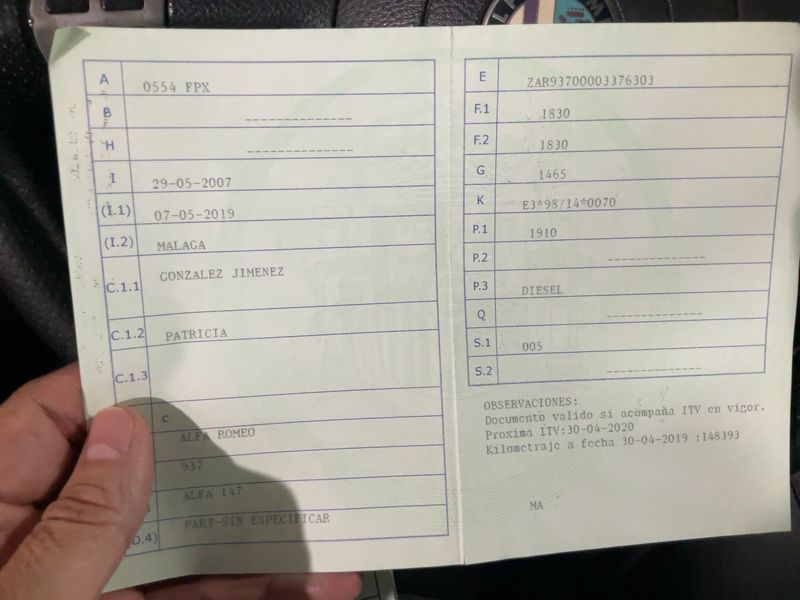 A 0554 FPX
B --------------
H --------------
I 29-05-2007
(I.1) 07-05-2019
(I.2) MALAGA
C.1.1 GONZALEZ JIMENEZ
C.1.2 PATRICIA
C.1.3
C
ALFA ROMEO
937
ALFA 147
D.4) PART-SIN ESPECIFICAR
E ZAR93700003376303
F.1 1830
F.2 1830
G 1465
K E3*98/14*0070
P.1 1910
P.2 --------------
P.3 DIESEL
Q --------------
S.1 005
S.2 --------------
OBSERVACIONES:
Documento valido si acompaña ITV en vigor.
Proxima ITV:30-04-2020
Kilometraje a fecha 30-04-2019 :148393
MA